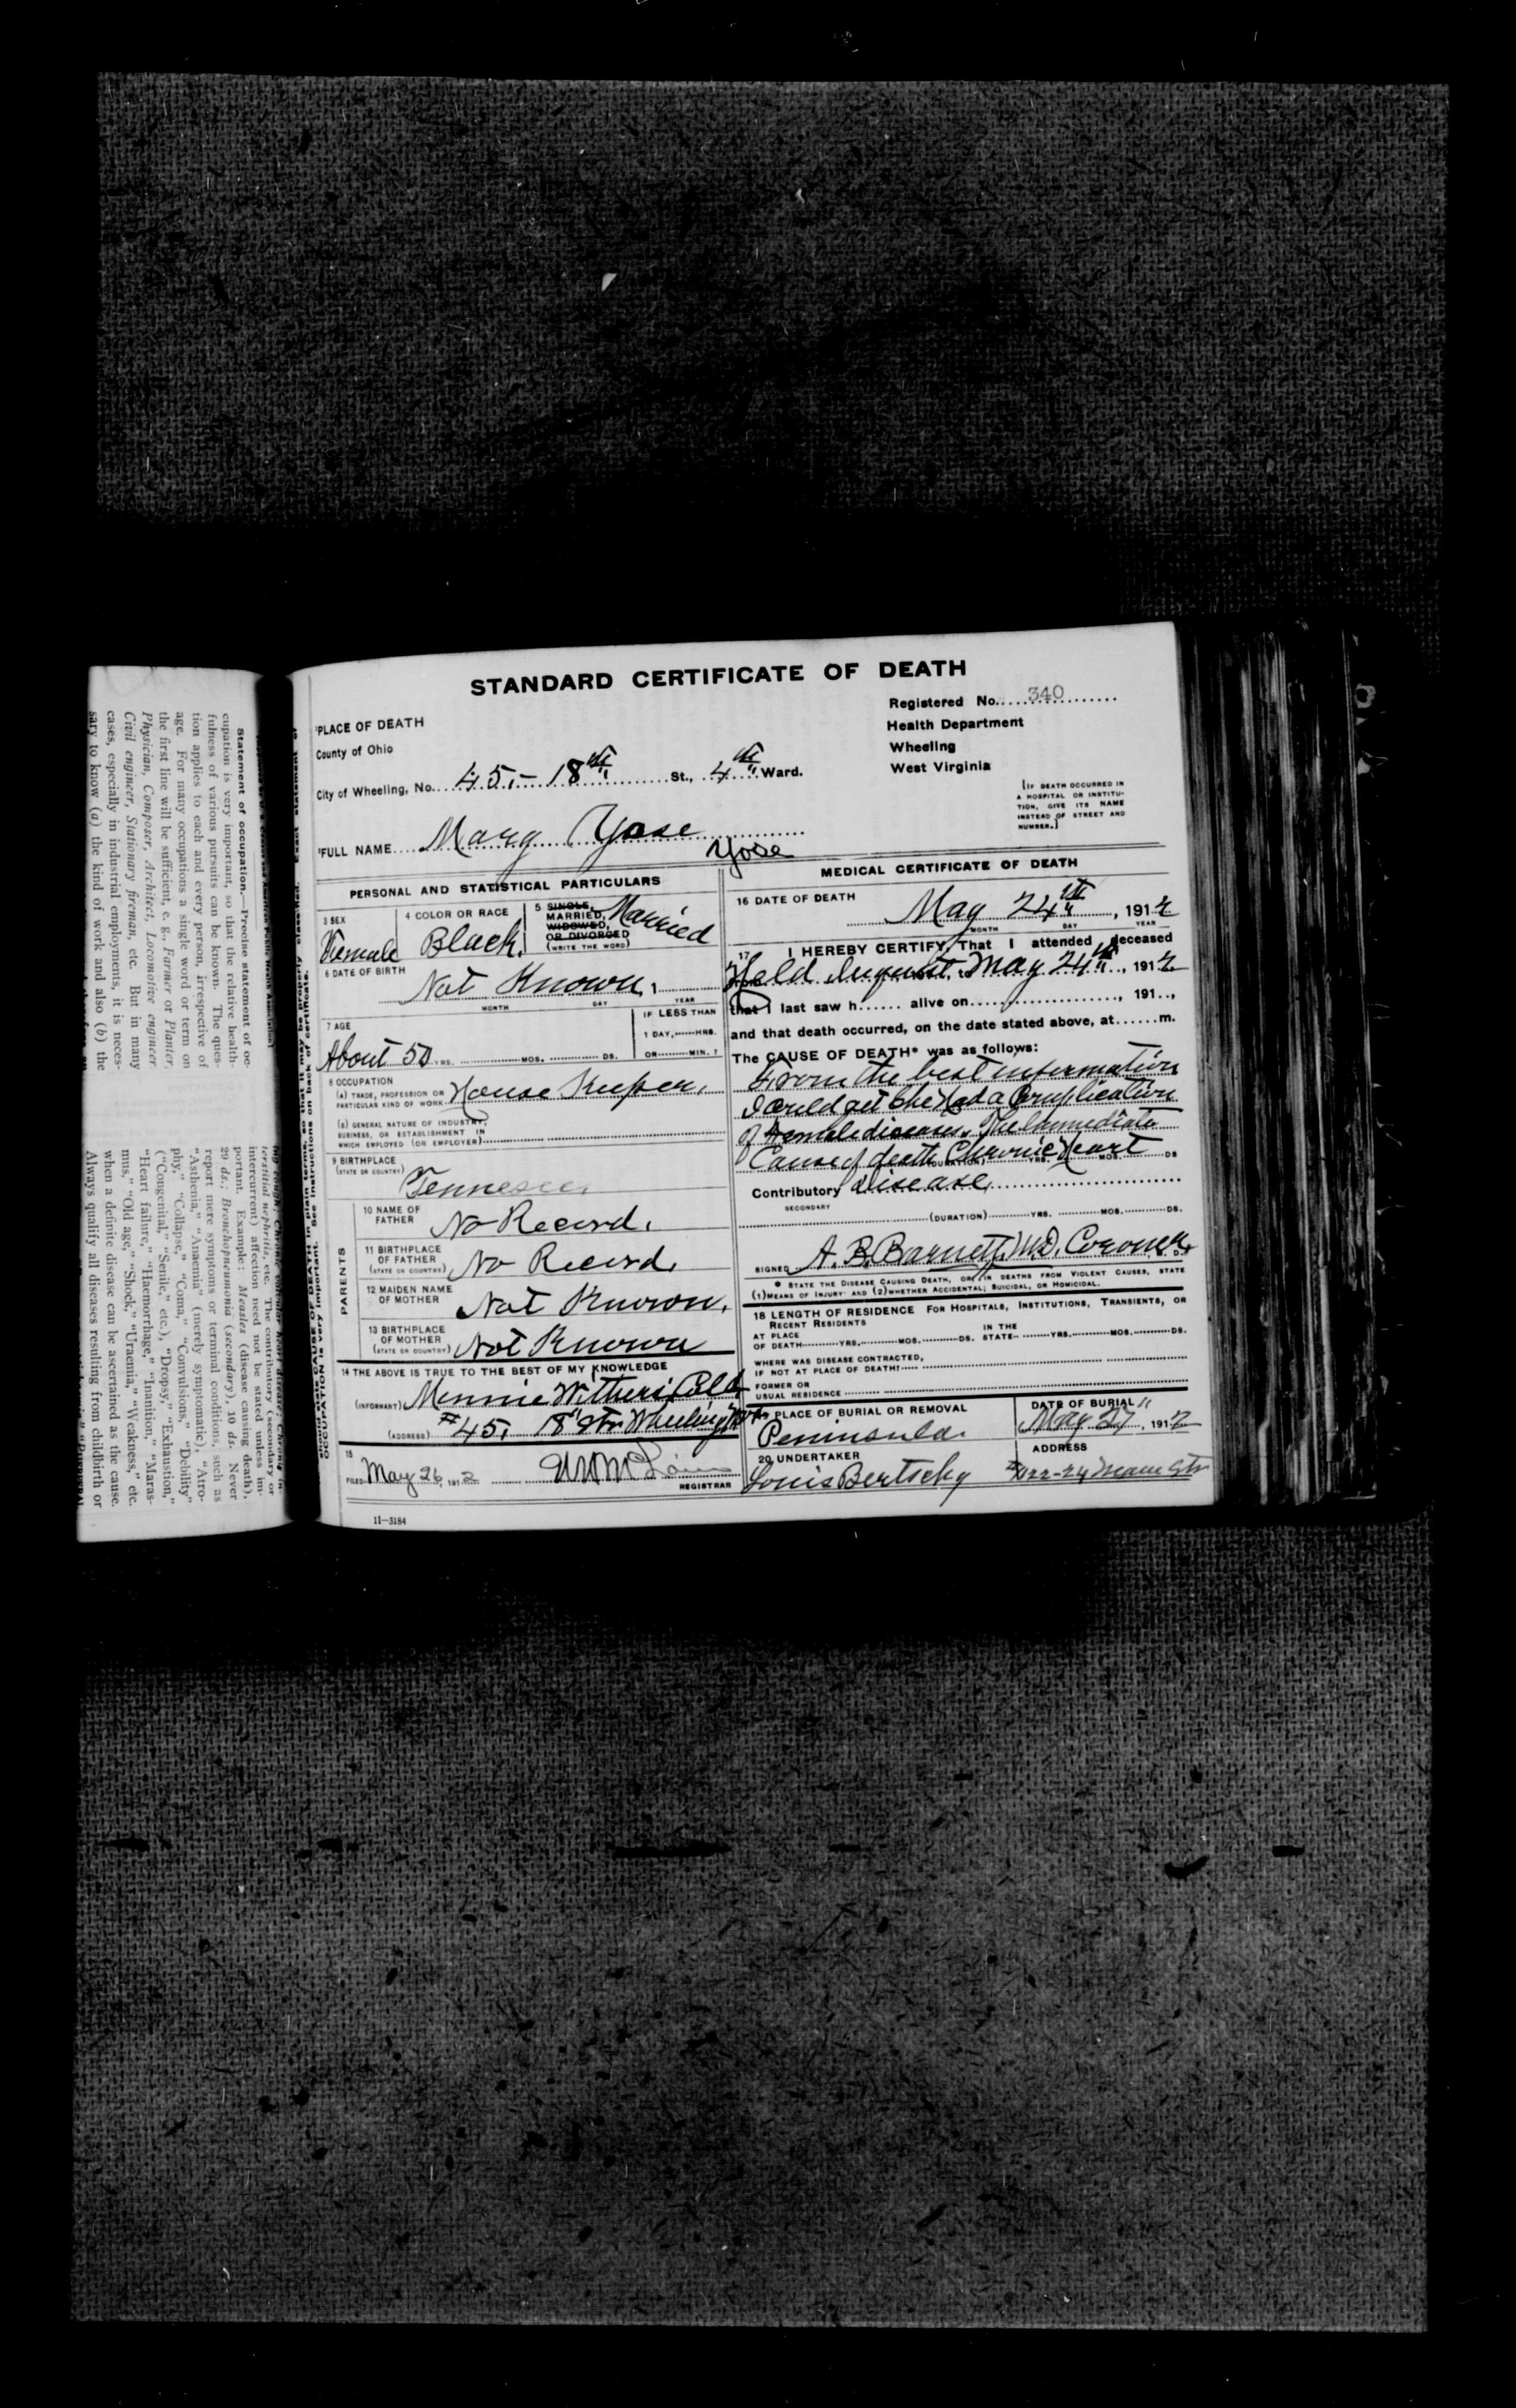 STANDARD CERTIFICATE OF DEATH
Registered No. 340
Health Department
Wheeling
West Virginia
1PLACE OF DEATH
County of Ohio
City of Wheeling, No. 45,- 18th St., 4th Ward.
[IF DEATH OCCURRED IN
A HOSPITAL OR INSTITU-
TION, GIVE ITS NAME
INSTEAD OF STREET AND
NUMBER.]
2FULL NAME Mary Yose
Yose
PERSONAL AND STATISTICAL PARTICULARS
3 SEX
Female
4 COLOR OR RACE
Black.
5 SINGLE,
MARRIED,
WIDOWED,
OR DIVORCED
(WRITE THE WORD)
Married
6 DATE OF BIRTH
Not Known, 1
MONTH DAY YEAR
7 AGE
About 50 YRS. MOS. DS.
IF LESS THAN
1 DAY, HRS.
OR MIN. ?
8 OCCUPATION
(A) TRADE, PROFESSION OR
PARTICULAR KIND OF WORK House Keeper.
(B) GENERAL NATURE OF INDUSTRY,
BUSINESS, OR ESTABLISHMENT IN
WHICH EMPLOYED (OR EMPLOYER)
9 BIRTHPLACE
(STATE OR COUNTRY)
Tennessee
PARENTS
10 NAME OF
FATHER No Record.
11 BIRTHPLACE
OF FATHER
(STATE OR COUNTRY) No Record.
12 MAIDEN NAME
OF MOTHER Not Known.
13 BIRTHPLACE
OF MOTHER
(STATE OR COUNTRY) Not Known
14 THE ABOVE IS TRUE TO THE BEST OF MY KNOWLEDGE
(INFORMANT) Minnie Withers
(ADDRESS) #45, 18" Str Wheeling
15
FILED May 26, 1912
REGISTRAR
11—3184
MEDICAL CERTIFICATE OF DEATH
16 DATE OF DEATH
May 24th, 1912
MONTH DAY YEAR
17 I HEREBY CERTIFY, That I attended deceased
from Held Inquest, to May 24th, 1912
that I last saw h alive on , 191 ,
and that death occurred, on the date stated above, at m.
The CAUSE OF DEATH* was as follows:
From the best information
I could get she had a Complication
of Female diseases, The Immediate
Cause of death Chronic Heart
(DURATION) YRS. MOS. DS
Contributory Disease
SECONDARY
(DURATION) YRS. MOS. DS.
SIGNED A. B. Barnett, M.D. Coroner
* STATE THE DISEASE CAUSING DEATH, OR, IN DEATHS FROM VIOLENT CAUSES, STATE
(1) MEANS OF INJURY; AND (2) WHETHER ACCIDENTAL; SUICIDAL, OR HOMICIDAL.
18 LENGTH OF RESIDENCE FOR HOSPITALS, INSTITUTIONS, TRANSIENTS, OR
RECENT RESIDENTS
AT PLACE
OF DEATH YRS. MOS. DS.
IN THE
STATE YRS. MOS. DS.
WHERE WAS DISEASE CONTRACTED,
IF NOT AT PLACE OF DEATH?
FORMER OR
USUAL RESIDENCE
19 PLACE OF BURIAL OR REMOVAL
Peninsula.
DATE OF BURIAL
May 27", 1912
20 UNDERTAKER
Louis Bertschy
ADDRESS
Main Str
Statement of occupation.—Precise statement of oc-
cupation is very important, so that the relative health-
fulness of various pursuits can be known. The ques-
tion applies to each and every person, irrespective of
age. For many occupations a single word or term on
the first line will be sufficient, e. g., Farmer or Planter,
Physician, Composer, Architect, Locomotive engineer,
Civil engineer, Stationary fireman, etc. But in many
cases, especially in industrial employments, it is neces-
sary to know (a) the kind of work and also (b) the
terstitial nephritis, etc. The contributory (secondary or
intercurrent) affection need not be stated unless im-
portant. Example: Measles (disease causing death),
29 ds.; Bronchopneumonia (secondary), 10 ds. Never
report mere symptoms or terminal conditions, such as
"Asthenia," "Anaemia" (merely symptomatic), "Atro-
phy," "Collapse," "Coma," "Convulsions," "Debility"
("Congenital," "Senile," etc.), "Dropsy," "Exhaustion,"
"Heart failure," "Haemorrhage," "Inanition," "Maras-
mus," "Old age," "Shock," "Uraemia," "Weakness," etc.
when a definite disease can be ascertained as the cause.
Always qualify all diseases resulting from childbirth or